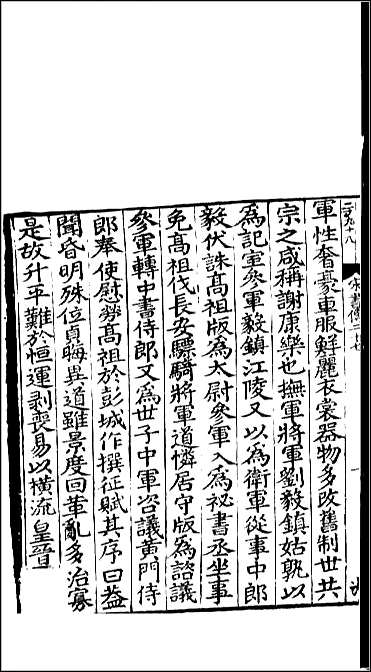 軍性奢豪車服鮮麗衣裳器物多改舊制世共
宗之咸稱謝康樂也撫軍將軍劉毅鎮姑孰以
為記室參軍毅鎮江陵又以為衛軍從事中郎
毅伏誅高祖版為太尉參軍入為祕書丞坐事
免高祖伐長安驃騎將軍道憐居守版為諮議
參軍轉中書侍郎又為世子中軍咨議黃門侍
郎奉使慰勞高祖於彭城作撰征賦其序曰蓋
聞昏明殊位貞晦異道雖景度回革亂多治寡
是故升平難於恒運剥喪易以橫流皇晉